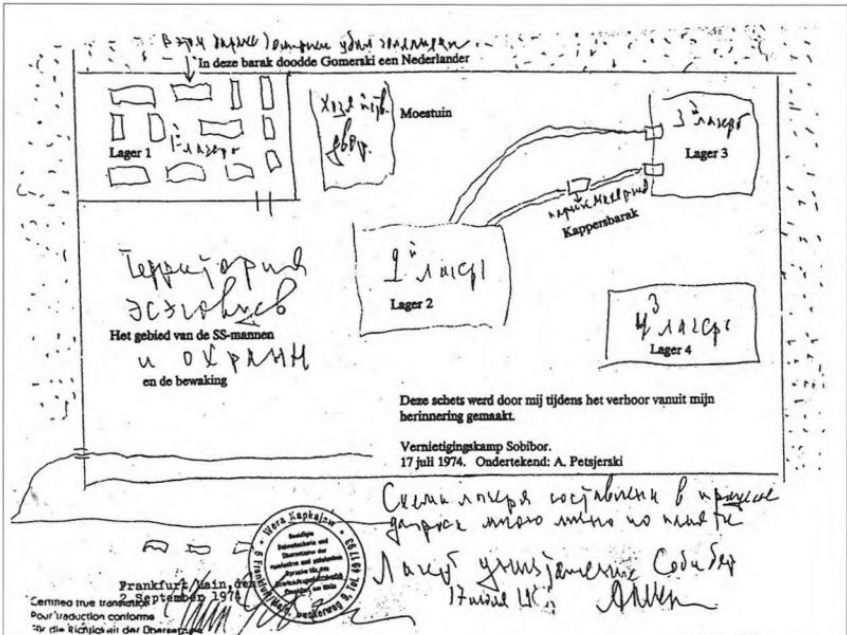 В этом бараке Гомерски убил голландца
In deze barak doodde Gomerski een Nederlander
Moestuin
двор.
1й лагерь
Lager 1
3й лагерь
Lager 3
Kappersbarak
2й лагерь
Lager 2
Территория
эсэсовцев
Het gebied van de SS-mannen
и охраны
en de bewaking
4й лагерь
Lager 4
Deze schets werd door mij tijdens het verhoor vanuit mijn
herinnering gemaakt.
Vernietigingskamp Sobibor.
17 juli 1974. Ondertekend: A. Petsjerski
Схема лагеря составлена в процессе
допроса мною лично по памяти
Лагерь уничтожения Собибор
17 июля
Wera Kapkajew
Frankfurt/Main, den
2. September 1974
Certified true translation
Pour traduction conforme
Für die Richtigkeit der Übersetzung